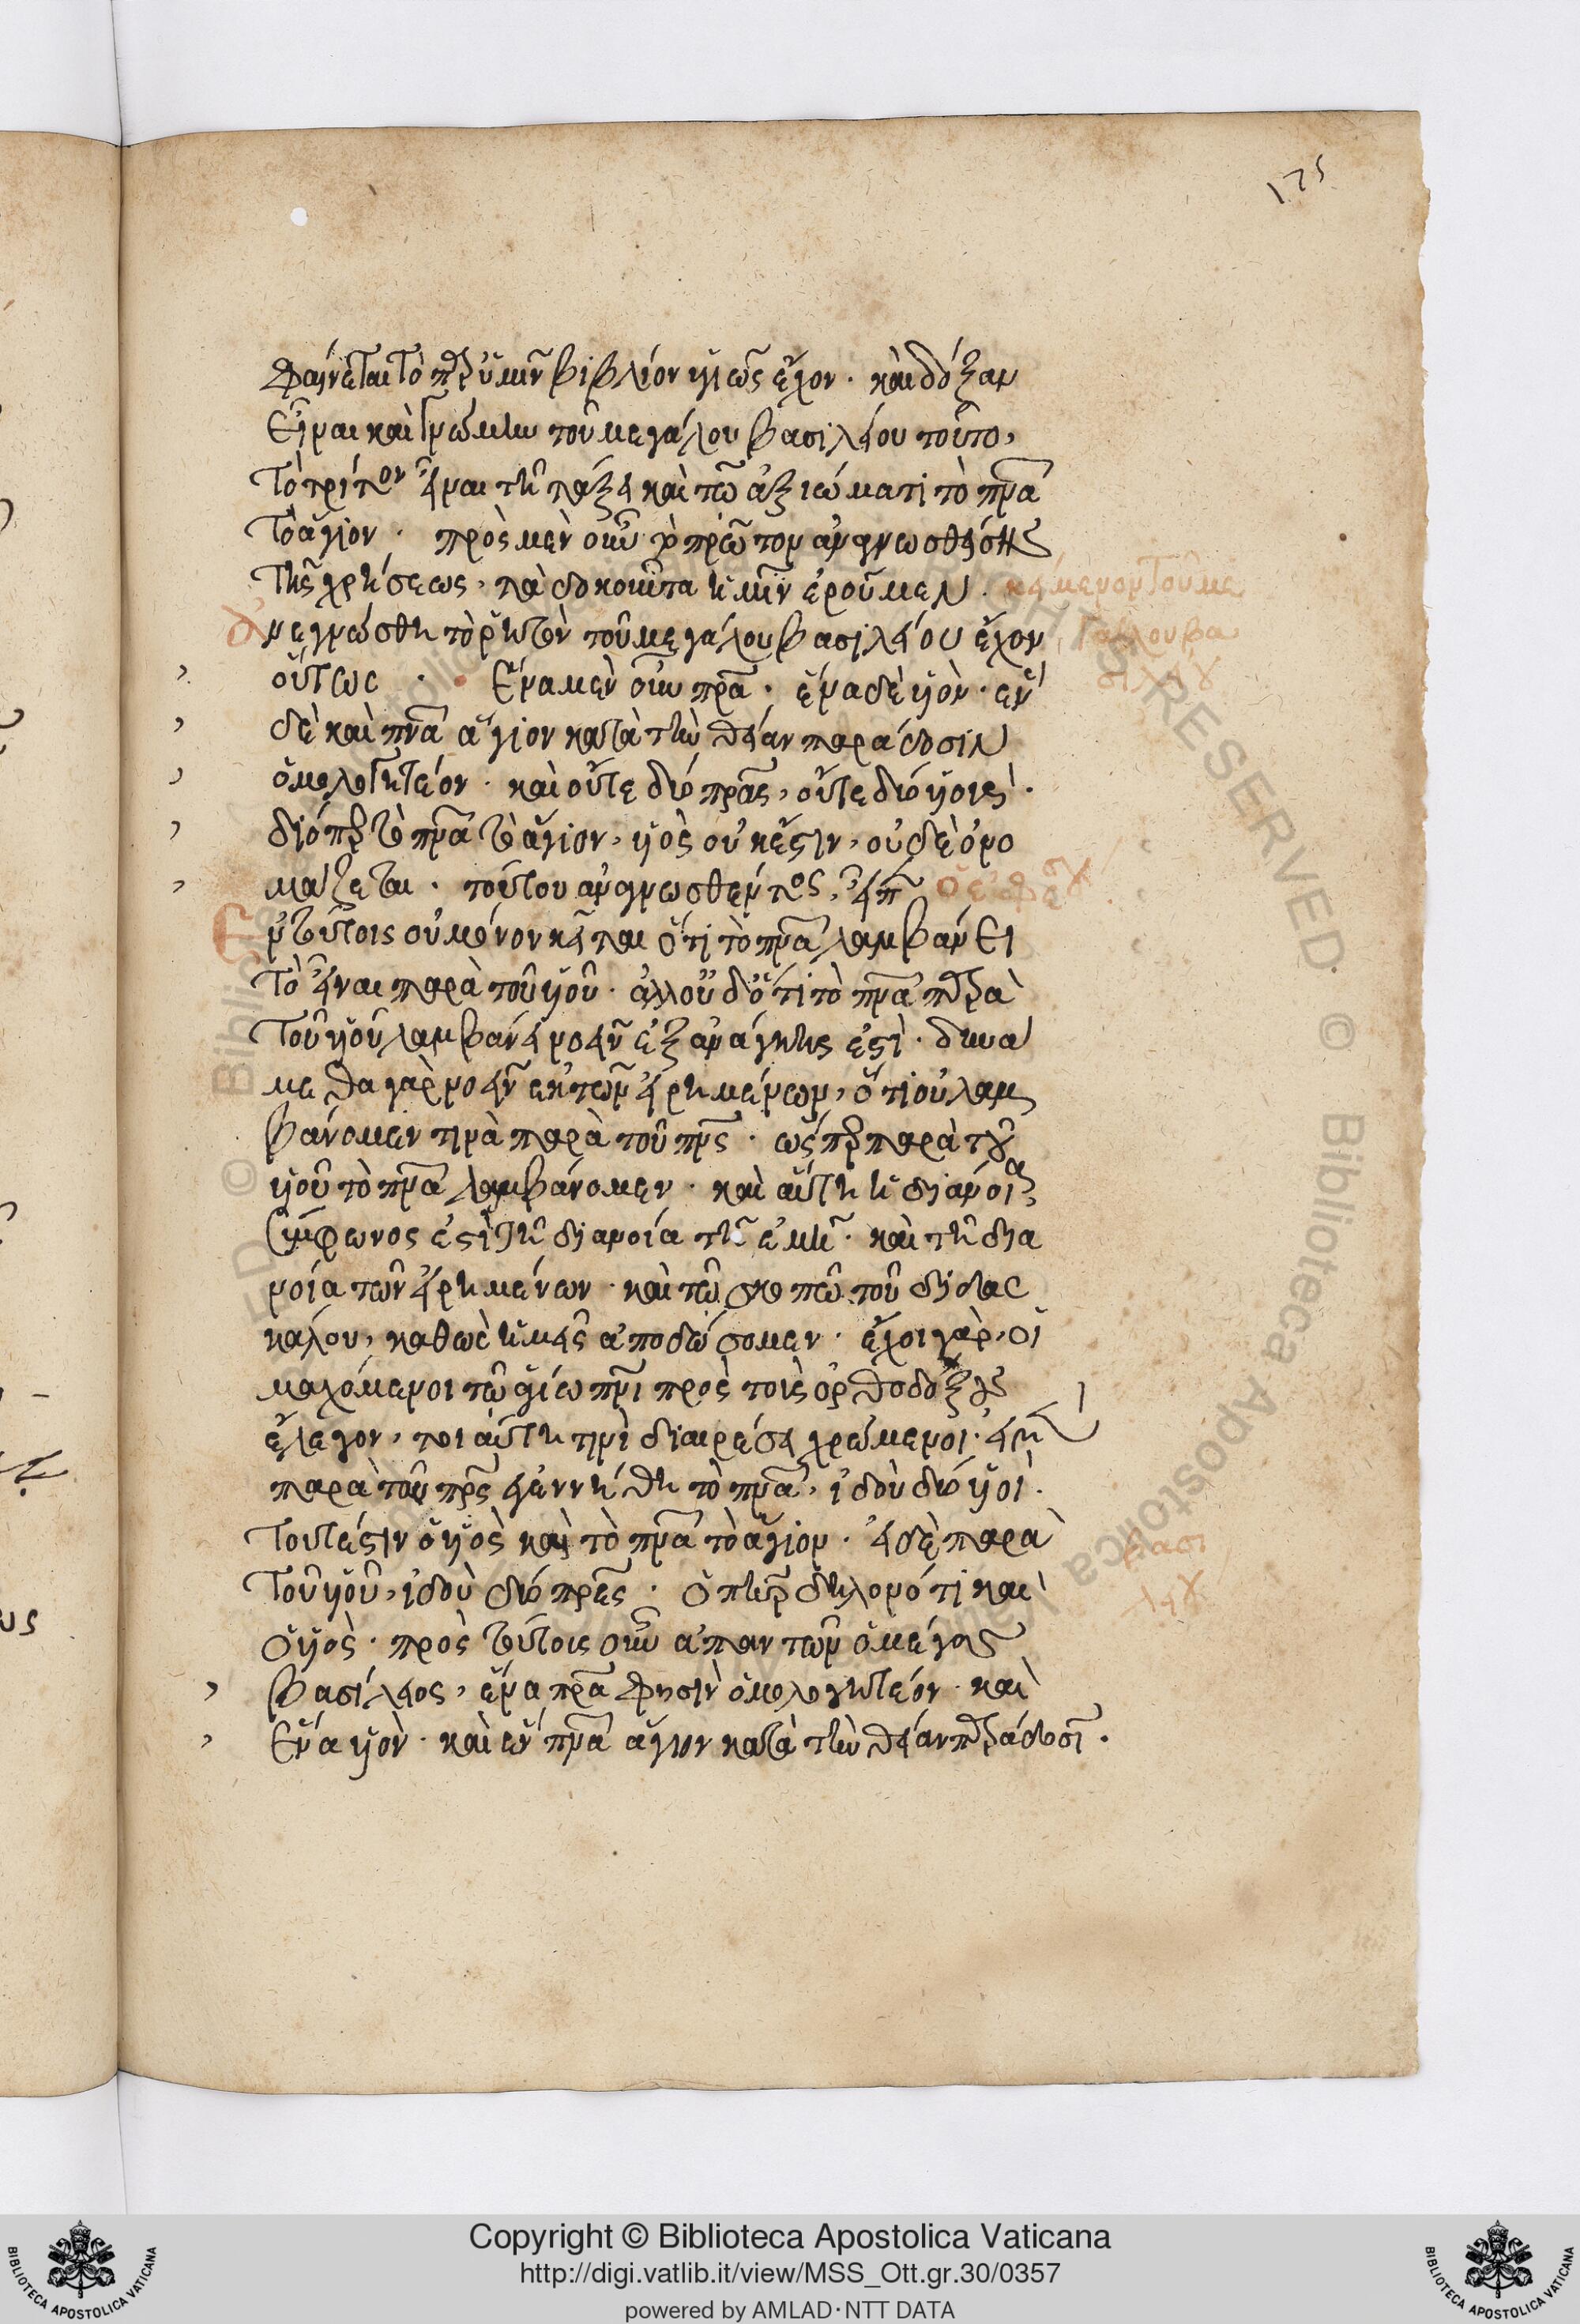 175
φαίνεται τὸ παρ' ὑμῖν βιβλίον ὑγιῶς ἔχον · καὶ δόξαν
εἶναι καὶ γνώμην τοῦ μεγάλου βασιλείου τοῦτο,
τὸ τρίτον εἶναι τῆ τάξει καὶ τῶ ἀξιώματι τὸ πνα
τὸ ἅγιον · πρὸς μὲν οὖν τὸ πρῶτον ἀναγνωσθείσης
τῆς χρήσεως, τὰ δοκοῦντα ἡμῖν ἐροῦμεν · κείμενον τοῦ με
ἀνεγνώσθη τὸ ῥητὸν τοῦ μεγάλου βασιλείου ἔχον γάλου βα
οὕτως · ἕνα μὲν οὖν πρα · ἕνα δὲ υἱὸν · ἓν σιλείου
δὲ καὶ πνα ἅγιον κατὰ τὴν θείαν παράδοσιν
ὁμολογητέον · καὶ οὔτε δύο πρας, οὔτε δύο υἱούς ·
διόπερ τὸ πνα τὸ ἅγιον, υἱὸς οὐκ ἔστιν, οὐδὲ ὀνο
μάζεται · τούτου ἀναγνωσθέντος, εἶπ ὁ ἐφέσου
ἐν τούτοις οὐ μόνον κεῖται ὅτι τὸ πνα λαμβάνει
τὸ εἶναι παρὰ τοῦ υἱοῦ · ἀλλ' οὐδ' ὅτι τὸ πνα παρὰ
τοῦ υἱοῦ λαμβάνει νοεῖν ἐξ ἀνάγκης ἐστὶ · δυνά
μεθα γὰρ νοεῖν ἐκ τῶν εἰρημένων, ὅτι οὐ λαμ
βάνομεν τινὰ παρὰ τοῦ πρς · ὥσπερ παρὰ τοῦ
υἱοῦ τὸ πνα λαμβάνομεν · καὶ αὕτη ἡ διάνοια
σύμφωνος ἐστὶ τῆ διανοία τῆ ἐμῆ · καὶ τῆ δια
νοία τῶν εἰρημένων · καὶ τῶ σκοπῶ τοῦ διδασ
κάλου, καθὼς ἡμεῖς ἀποδώσομεν · ἐκεῖνοι γὰρ, οἱ
μαχόμενοι τῶ ἁγίω πνι πρὸς τοὺς ὀρθοδόξους
ἔλεγον, τοιαύτη τινὶ διαιρέσει χρώμενοι · εἰ μὲν
παρὰ τοῦ πρς ἐγεννήθη τὸ πνα, ἰδοὺ δύο υἱοὶ ·
τουτέστιν ὁ υἱὸς καὶ τὸ πνα τὸ ἅγιον · εἰ δὲ παρὰ βασι
τοῦ υἱοῦ, ἰδοὺ δύο πρες · ὁ πηρ δηλονότι καὶ λείου
ὁ υἱὸς · πρὸς τούτοις οὖν ἀπαντῶν ὁ μέγας
βασίλειος, ἕνα πρα φησὶν ὁμολογητέον · καὶ
ἕνα υἱὸν · καὶ ἓν πνα ἅγιον κατὰ τὴν θείαν παράδοσιν ·
Copyright © Biblioteca Apostolica Vaticana
http://digi.vatlib.it/view/MSS_Ott.gr.30/0357
powered by AMLAD·NTT DATA
BIBLIOTECA APOSTOLICA VATICANA
BIBLIOTECA APOSTOLICA VATICANA